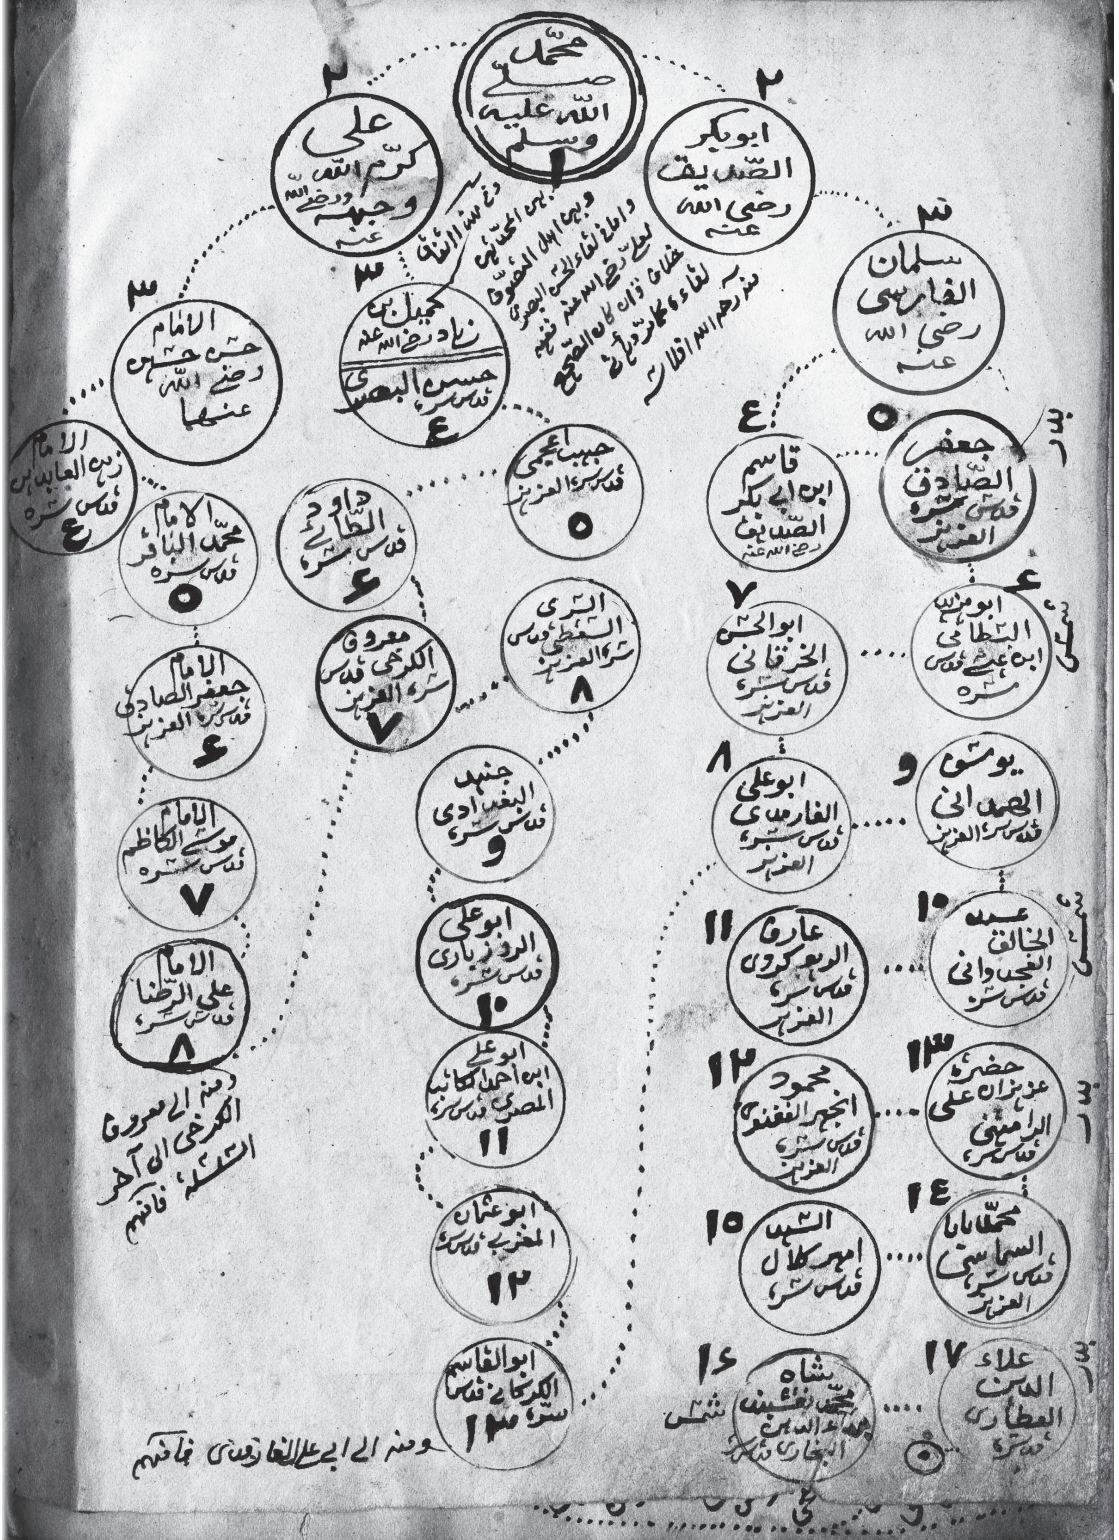 محمد
صلى
الله عليه
وسلم
١
٢
علي
كرّم الله
وجهه
ورضي الله
عنه
٢
ابوبكر
الصّديق
رضي الله
عنه
٣
سلمان
الفارسي
رضي الله
عنه
٣
الامام
حسن حسين
رضي الله
عنهما
٣
كميل بن
زياد رضي الله عنه
حسن البصري
قدس سره
٤
بين المحدثين
وبين اهل التصوّف
واما لقاء الحسن البصري
لعلي رضي الله عنه ففيه
خلاف وان كان الصّحيح
منه رحمه الله
الامام
زين العابدين
قدس سره
٤
الامام
محمد الباقر
قدس سره
٥
الامام
جعفر الصادق
قدس سره العزيز
٦
الامام
موسى الكاظم
قدس سره
٧
الامام
علي الرّضا
قدس سره
٨
ومنه الى معروف
الكرخي الى آخر
السلسلة فافهم
حبيب اعجمي
قدس سره العزيز
٥
داود
الطائي
قدس سره
٦
معروف
الكرخي قدس
سره العزيز
٧
السري
السقطي قدس
سره العزيز
٨
جنيد
البغدادي
قدس سره
٩
ابو علي
الروزباري
قدس سره
١٠
ابو علي
ابن احمد الكاتب
المصري قدس سره
١١
ابو عثمان
المغربي قدس سره
١٢
ابو القاسم
الكركاني قدس
سره
١٣
ومنه الى ابي علي الفارمدي فافهم
٤
قاسم
ابن ابي بكر
الصّديق
رضي الله عنه
٥
جعفر
الصّادق
قدس سره
العزيز
٦
ابو يزيد
البسطامي
ابن عيسى قدس
سره
٧
ابو الحسن
الخرقاني
قدس سره
العزيز
٨
ابو علي
الفارمدي
قدس سره
العزيز
٩
يوسف
الهمداني
قدس سره العزيز
١٠
عبد
الخالق
الغجدواني
قدس سره
١١
عارف
الريوكروي
قدس سره
العزيز
١٢
محمود
انجير الفغنوي
قدس سره
العزيز
١٣
حضرة
عزيزان علي
الرامتني
قدس سره
١٤
محمد بابا
السماسي
قدس سره
العزيز
١٥
السيد
امير كلال
قدس سره
١٦
شاه
محمد نقشبند
بهاء الدين
البخاري قدس سره
شمس
١٧
علاء
الدين
العطاري
قدس سره